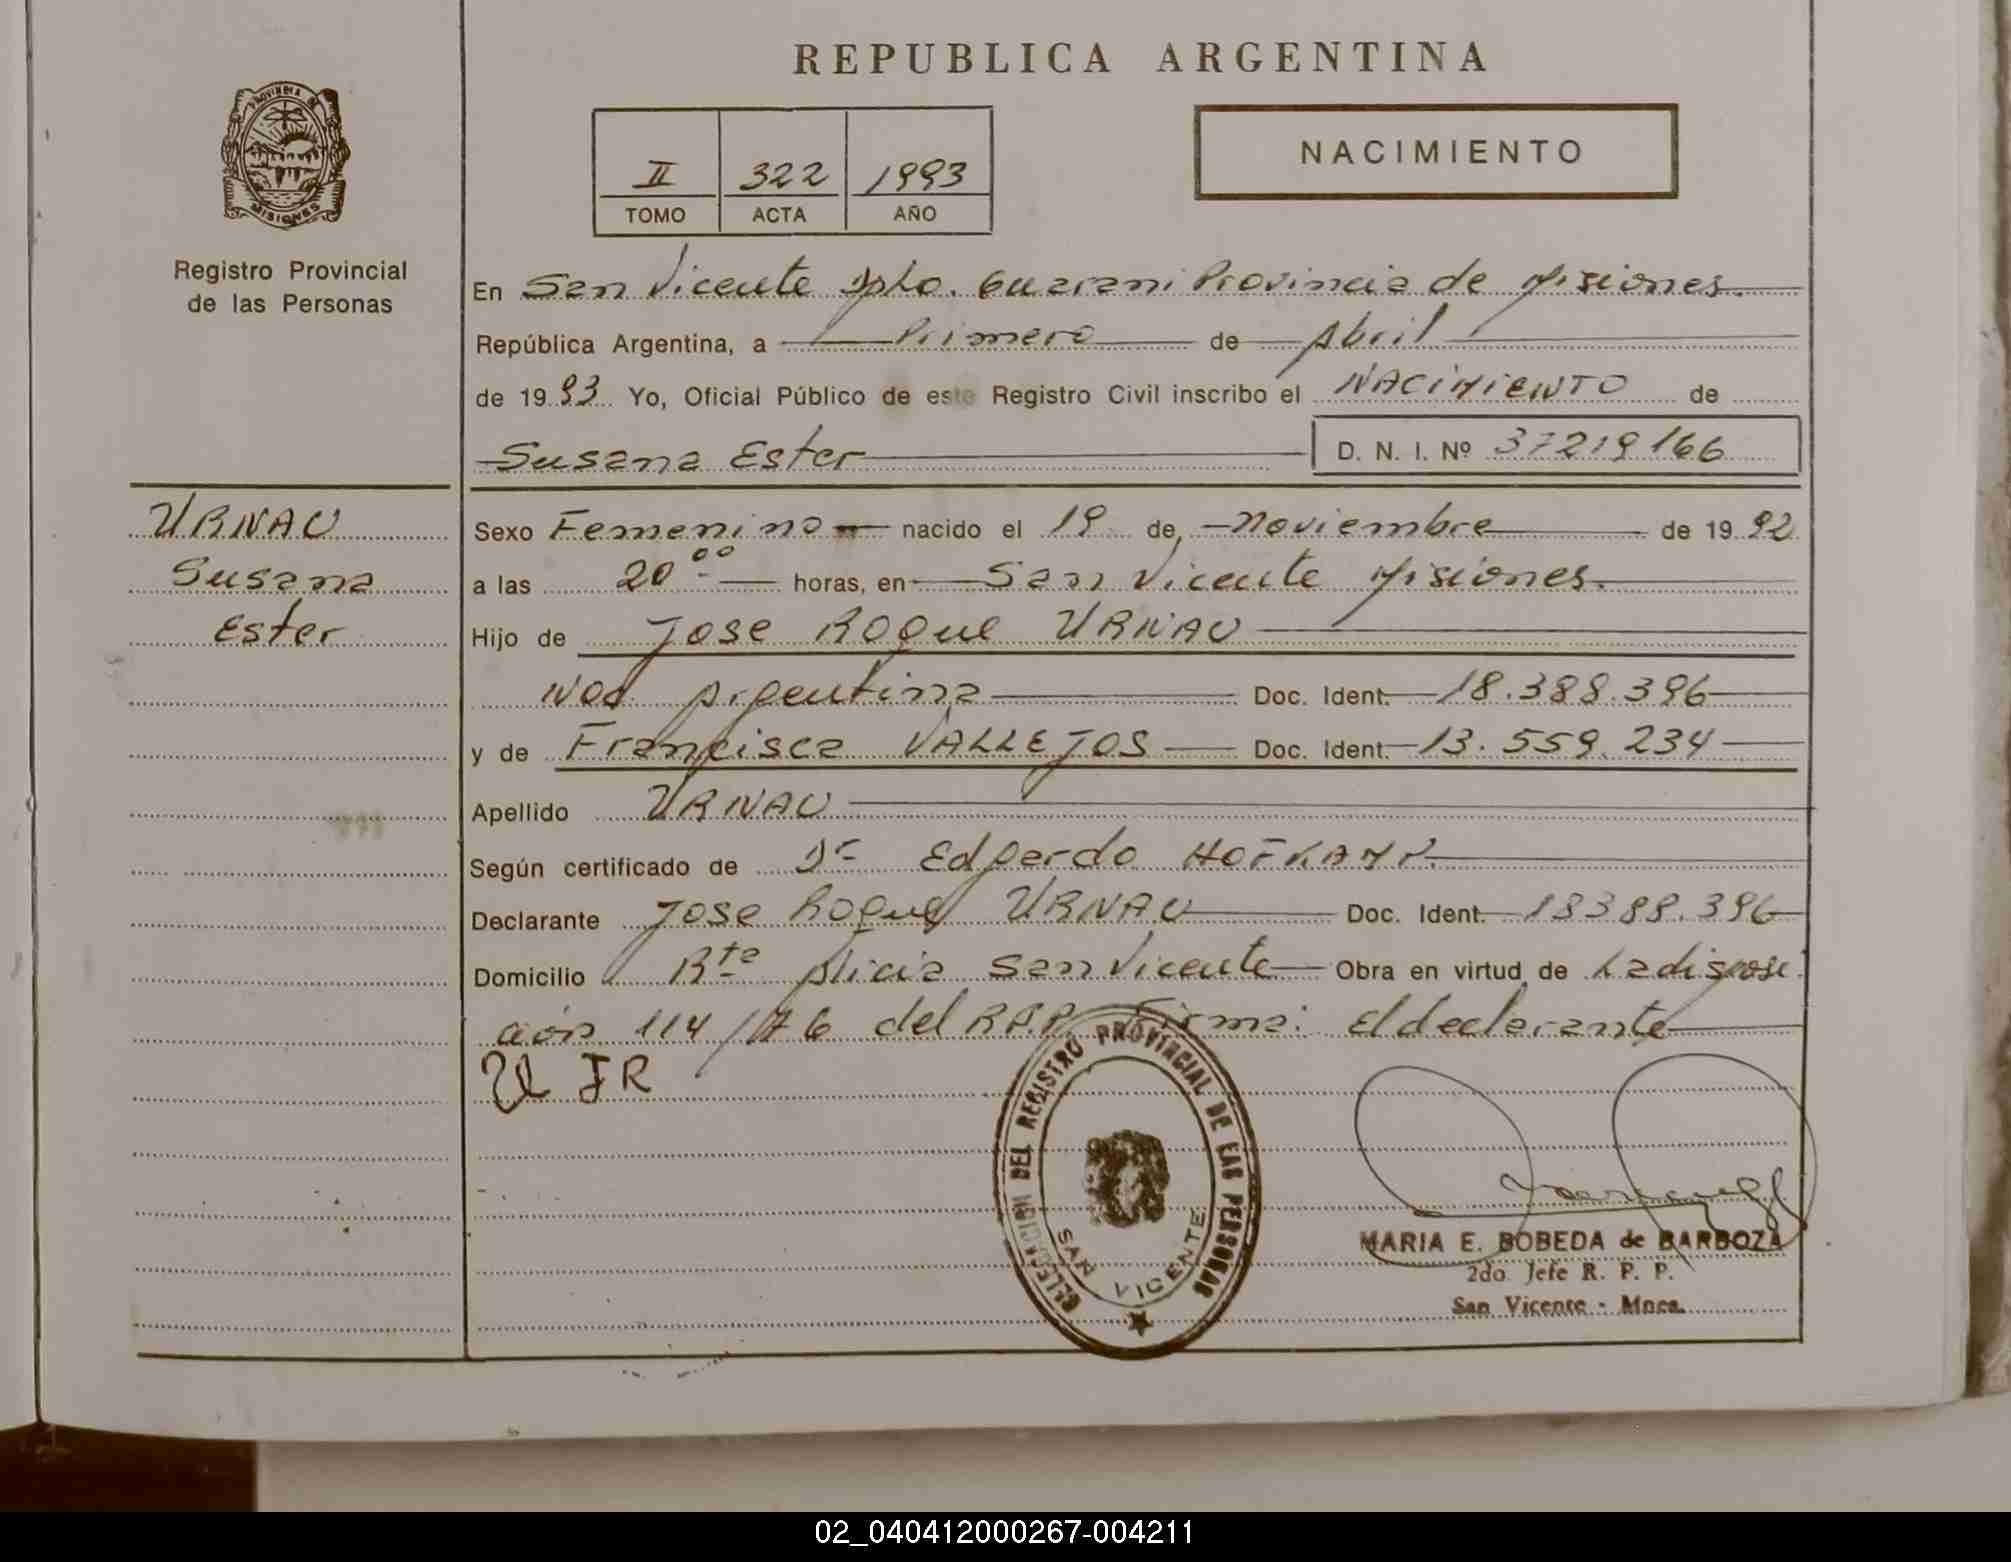 REPUBLICA ARGENTINA
PROVINCIA DE
MISIONES
Registro Provincial
de las Personas
II 322 1993
TOMO ACTA AÑO
NACIMIENTO
En San Vicente Dpto. Guarani Provincia de Misiones.
República Argentina, a Primero de Abril
de 1993 Yo, Oficial Público de este Registro Civil inscribo el NACIMIENTO de
Susana Ester D. N. I. Nº 37219166
URNAU
Susana
Ester
Sexo Femenino nacido el 19 de Noviembre de 1992
a las 20 ºº horas, en San Vicente Misiones.
Hijo de Jose Roque URNAU
Nac. Argentina Doc. Ident. 18.388.396
y de Francisca VALLEJOS Doc. Ident. 13.559.234
Apellido URNAU
Según certificado de Dr Edgardo HOFKAMP.
Declarante Jose Roque URNAU Doc. Ident. 18388.396
Domicilio Rta Alicia San Vicente Obra en virtud de La disposi
ción 114/76 del R.P.P. Firma: El declarante
U JR
DELEGACION DEL REGISTRO PROVINCIAL DE LAS PERSONAS
SAN VICENTE
MARIA E. BOBEDA de BARBOZA
2do Jefe R. P. P.
San Vicente - Mnes.
02_040412000267-004211